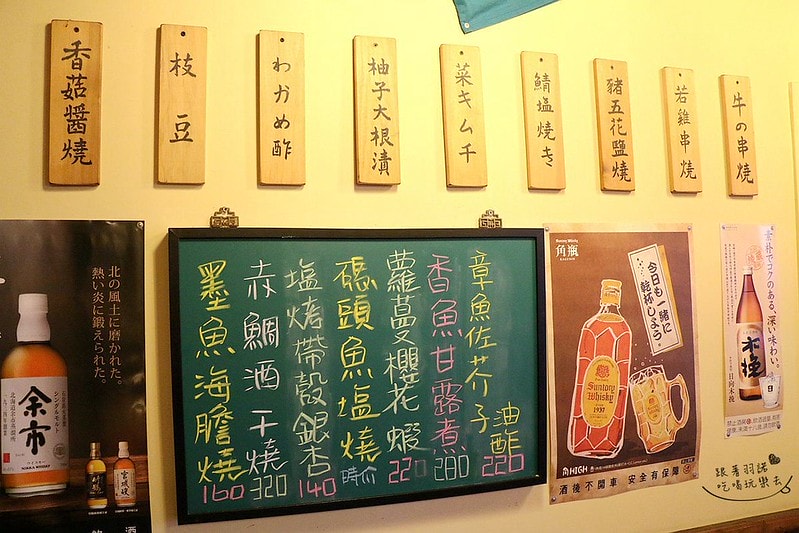 香菇醬燒
枝豆
わかめ酢
柚子大根漬
菜キムチ
鯖塩焼き
豬五花鹽燒
若雞串燒
牛の串燒
章魚佐芥子油醋220
香魚甘露煮280
蘿蔓櫻花蝦220
碼頭魚塩燒時价
塩烤帶殼銀杏140
赤鯛酒干燒320
墨魚海膽燒160
北の風土に磨かれた。
熱い炎に鍛えられた。
余市
NIKKA WHISKY
角瓶
今日も一緒に
乾杯しよう
SUNTORY
WHISKY
1937
角HIGH
酒後不開車 安全有保障
素朴でコクのある、深い味わい。
木挽
日向木挽
跟著羽諾
吃喝玩樂去